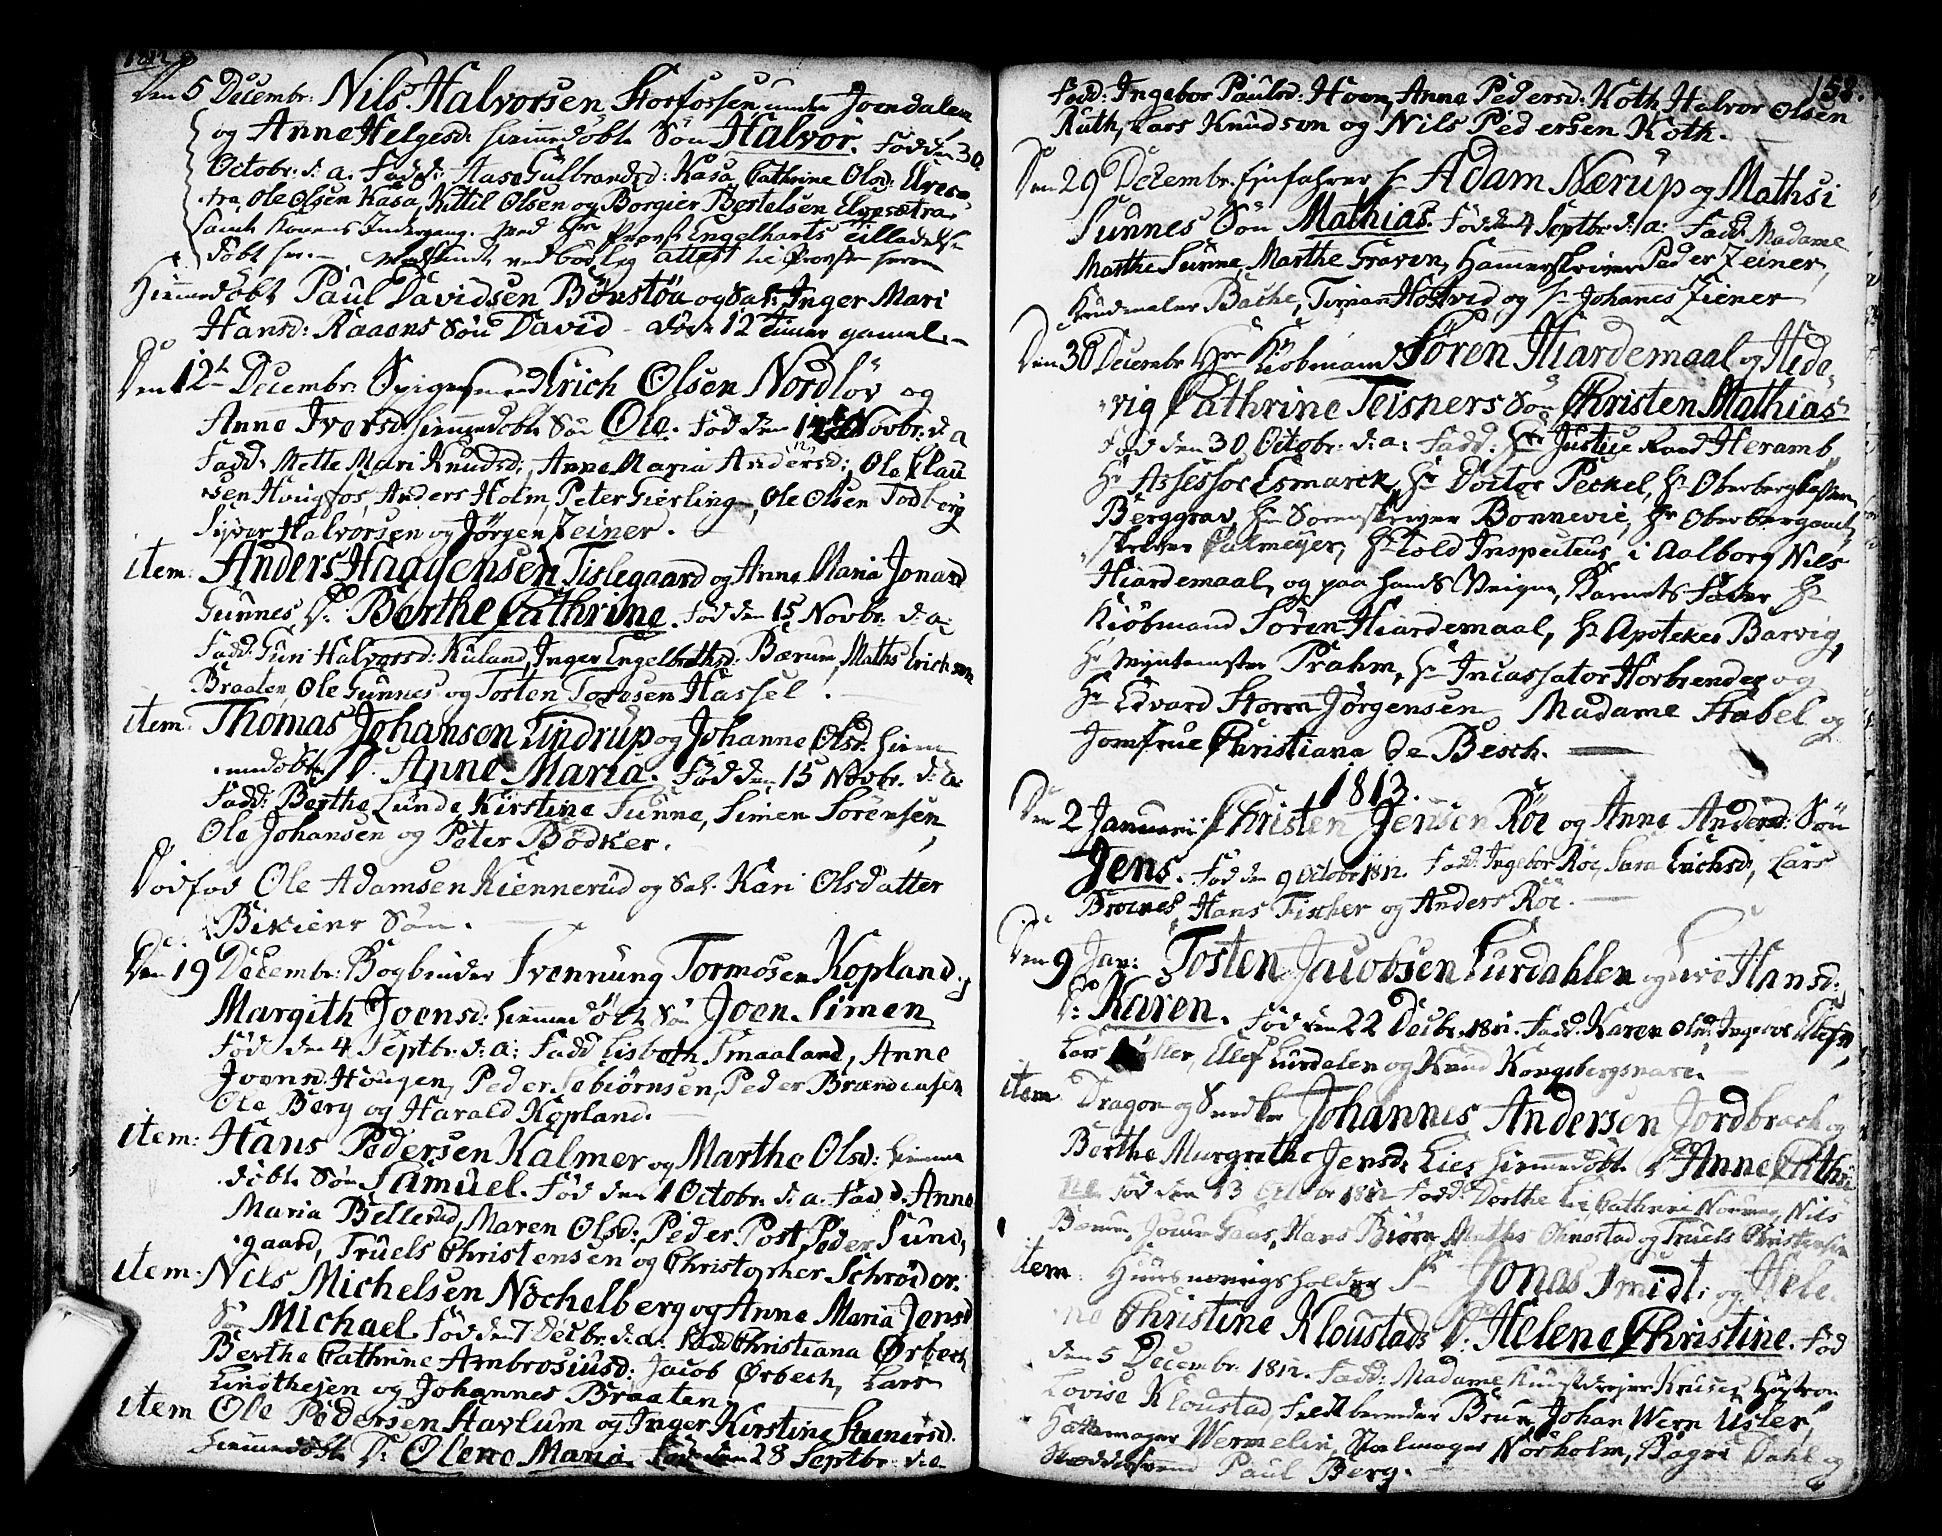 1812
Den 5 Decembr: Nils Halvorsen Storfossen under Joendalen
og Anne Helgesd: hiemmedøbte Søn Halvor. Fød den 30
Octobr: d: a. Fadd: Aase Gulbrandsd: Kasa, Cathrine Olsd: Elvesæ-
tra, Ole Olsen Kasa, Kittil Olsen og Borgier Bertelsen Elvesætra
samt Konens Indgang. med Hr Provst Engelharts Tilladelse
døbt her.
Hiemmedøbt Paul Davidsen Bønstøa og Sal: Inger Mari
Hansd: Raaens Søn David - døde 12 Timer gamel.
Den 12te Decembr: Spigersmed Erich Olsen Nordløv og
Anne Iversd: hiemmedøbte Søn Ole. Fød den Novbr: d: a
Fadd: Mette Mari Knudsd:, Anne Maria Andersd:, Ole Clau
sen Haugfos, Anders Holm, Peter Gierling, Ole Olsen Todberg
Syver Halvorsen og Jørgen Zeiner.
item: Anders Haagensen Tislegaard og Anne Maria Jonasd
Gunnes D: Berthe Cathrine. Fød den 15 Novbr: d: a:
Fadd: Guri Halvorsd: Ruland, Inger Engelbrethsd: Bærum, Maths Erichsen
Braaten, Ole Gunnes og Tosten Toresen Hassel.
item: Thomas Johansen Lindrup og Johanne Olsd: hiem
medøbte D: Anne Maria. Fød den 15 Novbr: d: a:
Fadd: Berthe Lunde, Kirstine Sunne, Simen Sørensen,
Ole Johansen og Peter Bødker.
Dødfød Ole Adamsen Kiennerud og Sal: Kari Olsdatter
Bikiens Søn.
Den 19 Decembr: Bogbinder Svennung Tormosen Kopland og
Margith Joensd: hiemmedøbt Søn Joen Simen
Fød den 4 Septbr: d: a: Fadd Lisbeth Smaaland, Anne
Joensd. Hougen, Peder Sebiørnsen, Peder Brændensen
Ole Berg og Harald Kopland.
item: Hans Pedersen Kalmer og Marthe Olsd: hiemme
døbte Søn Samuel. Fød den 1 Octobr: d: a. Fadd: Anne
Maria Bellerud, Maren Olsd:, Peder Post, Peder Sund
gaard, Truels Christensen og Christopher Schrøder.
item: Nils Michelsen Nochelberg og Anne Maria Jensd
Søn Michael Fød den 7 Decbr: d: a: Fadd Christiana Ørbech
Berthe Cathrine Ambrosiusd: Jacob Ørbech, Lars
Lindthejen og Johannes Braaten.
item Ole Pedersen Havlum og Inger Kirstine Steenersd.
hiemmedøbte D: Olene Maria Fød den 28 Septbr: d: a
158.
Fadd: Ingebor Paulsd: Hoen, Anne Pedersd: Koth Halvor Olsen
Ruth, Lars Knudsen og Nils Pedersen Koth.
Den 29 Decembr: Hr Adam Nærup og Mathsi
Sunnes Søn Mathias. Fød den 4 Septbr: d: a: Fadd: Madame
Marthe Sunne, Marthe Graven, Hammerskriver Peder Zeiner,
Bache, Timan Hostvid, og Hr Johanes Ziener
Den 30 Decembr Herr Kiøbmand Søren Hiardemaal og Hede-
vig Cathrine Teisners Søn Christen Mathias
Fød den 30 Octobr: d: a: Fadd: Hr Justice Raad Heramb
Hr Assessor Esmarck, Hr Doctor Peckel, Hr Oberberg
Berggrav, Hr Sorenskriver Bonnevie, Hr Oberbergamt
skriver Palmeyer, Hr Told Inspecteur i Aalborg Nils
Hiardemaal, og paa hans Vegne, Barnets Fader Hr
Kiøbmand Søren Hiardemaal, Hr Apoteker Barvig,
Hr Myntemester Prahm, Hr Incassator Horbrender og
Hr Edvard Storm Jørgensen Madame Stabel og
Jomfrue Christiana De Besch.
1813.
Den 2 Januarii Christen Jensen Røe og Anne Andersd: Søn
Jens. Fød den 9 Octobr 1812. Fadd: Ingebor Røe, Sara Erichsd:, Lars
Broenes, Hans Fischer og Anders Røe.
Den 9 Jan: Tosten Jacobsen Lurdahlen og Guri Hansd:
D: Karen. Fød den 22 Decbr. 1812. Fadd. Karen Olsd:, Ingebor
Lars Ellef Lurdalen og Knud Kongsbergsnare.
item Dragon og Snedker Johannes Andersen Jordbræch og
Berthe Margrethe Jensd: Lies hiemmedøbte D Anne Cathri
ne Fød den 13 Octobr 1812 Fadd: Dorthe Lie, Cathrine Nils
Bærum, Jonas, Hans Biørn, Maths Ohnestad og Truels Christensen
item: Huusnæringsholder Hr Jonas Smidt og Hele-
ne Christine Kloustads D: Helene Christine. Fød
den 5 Decembr 1812. Fadd: Madame Kunstdrejer Kruse,
Lovise Kloustad, Feldtbereder Brun, Johan Wern Usler,
Hattemager Wermelin, Norholm, Bager Dahl og
Skreddersvend Paul Berg.